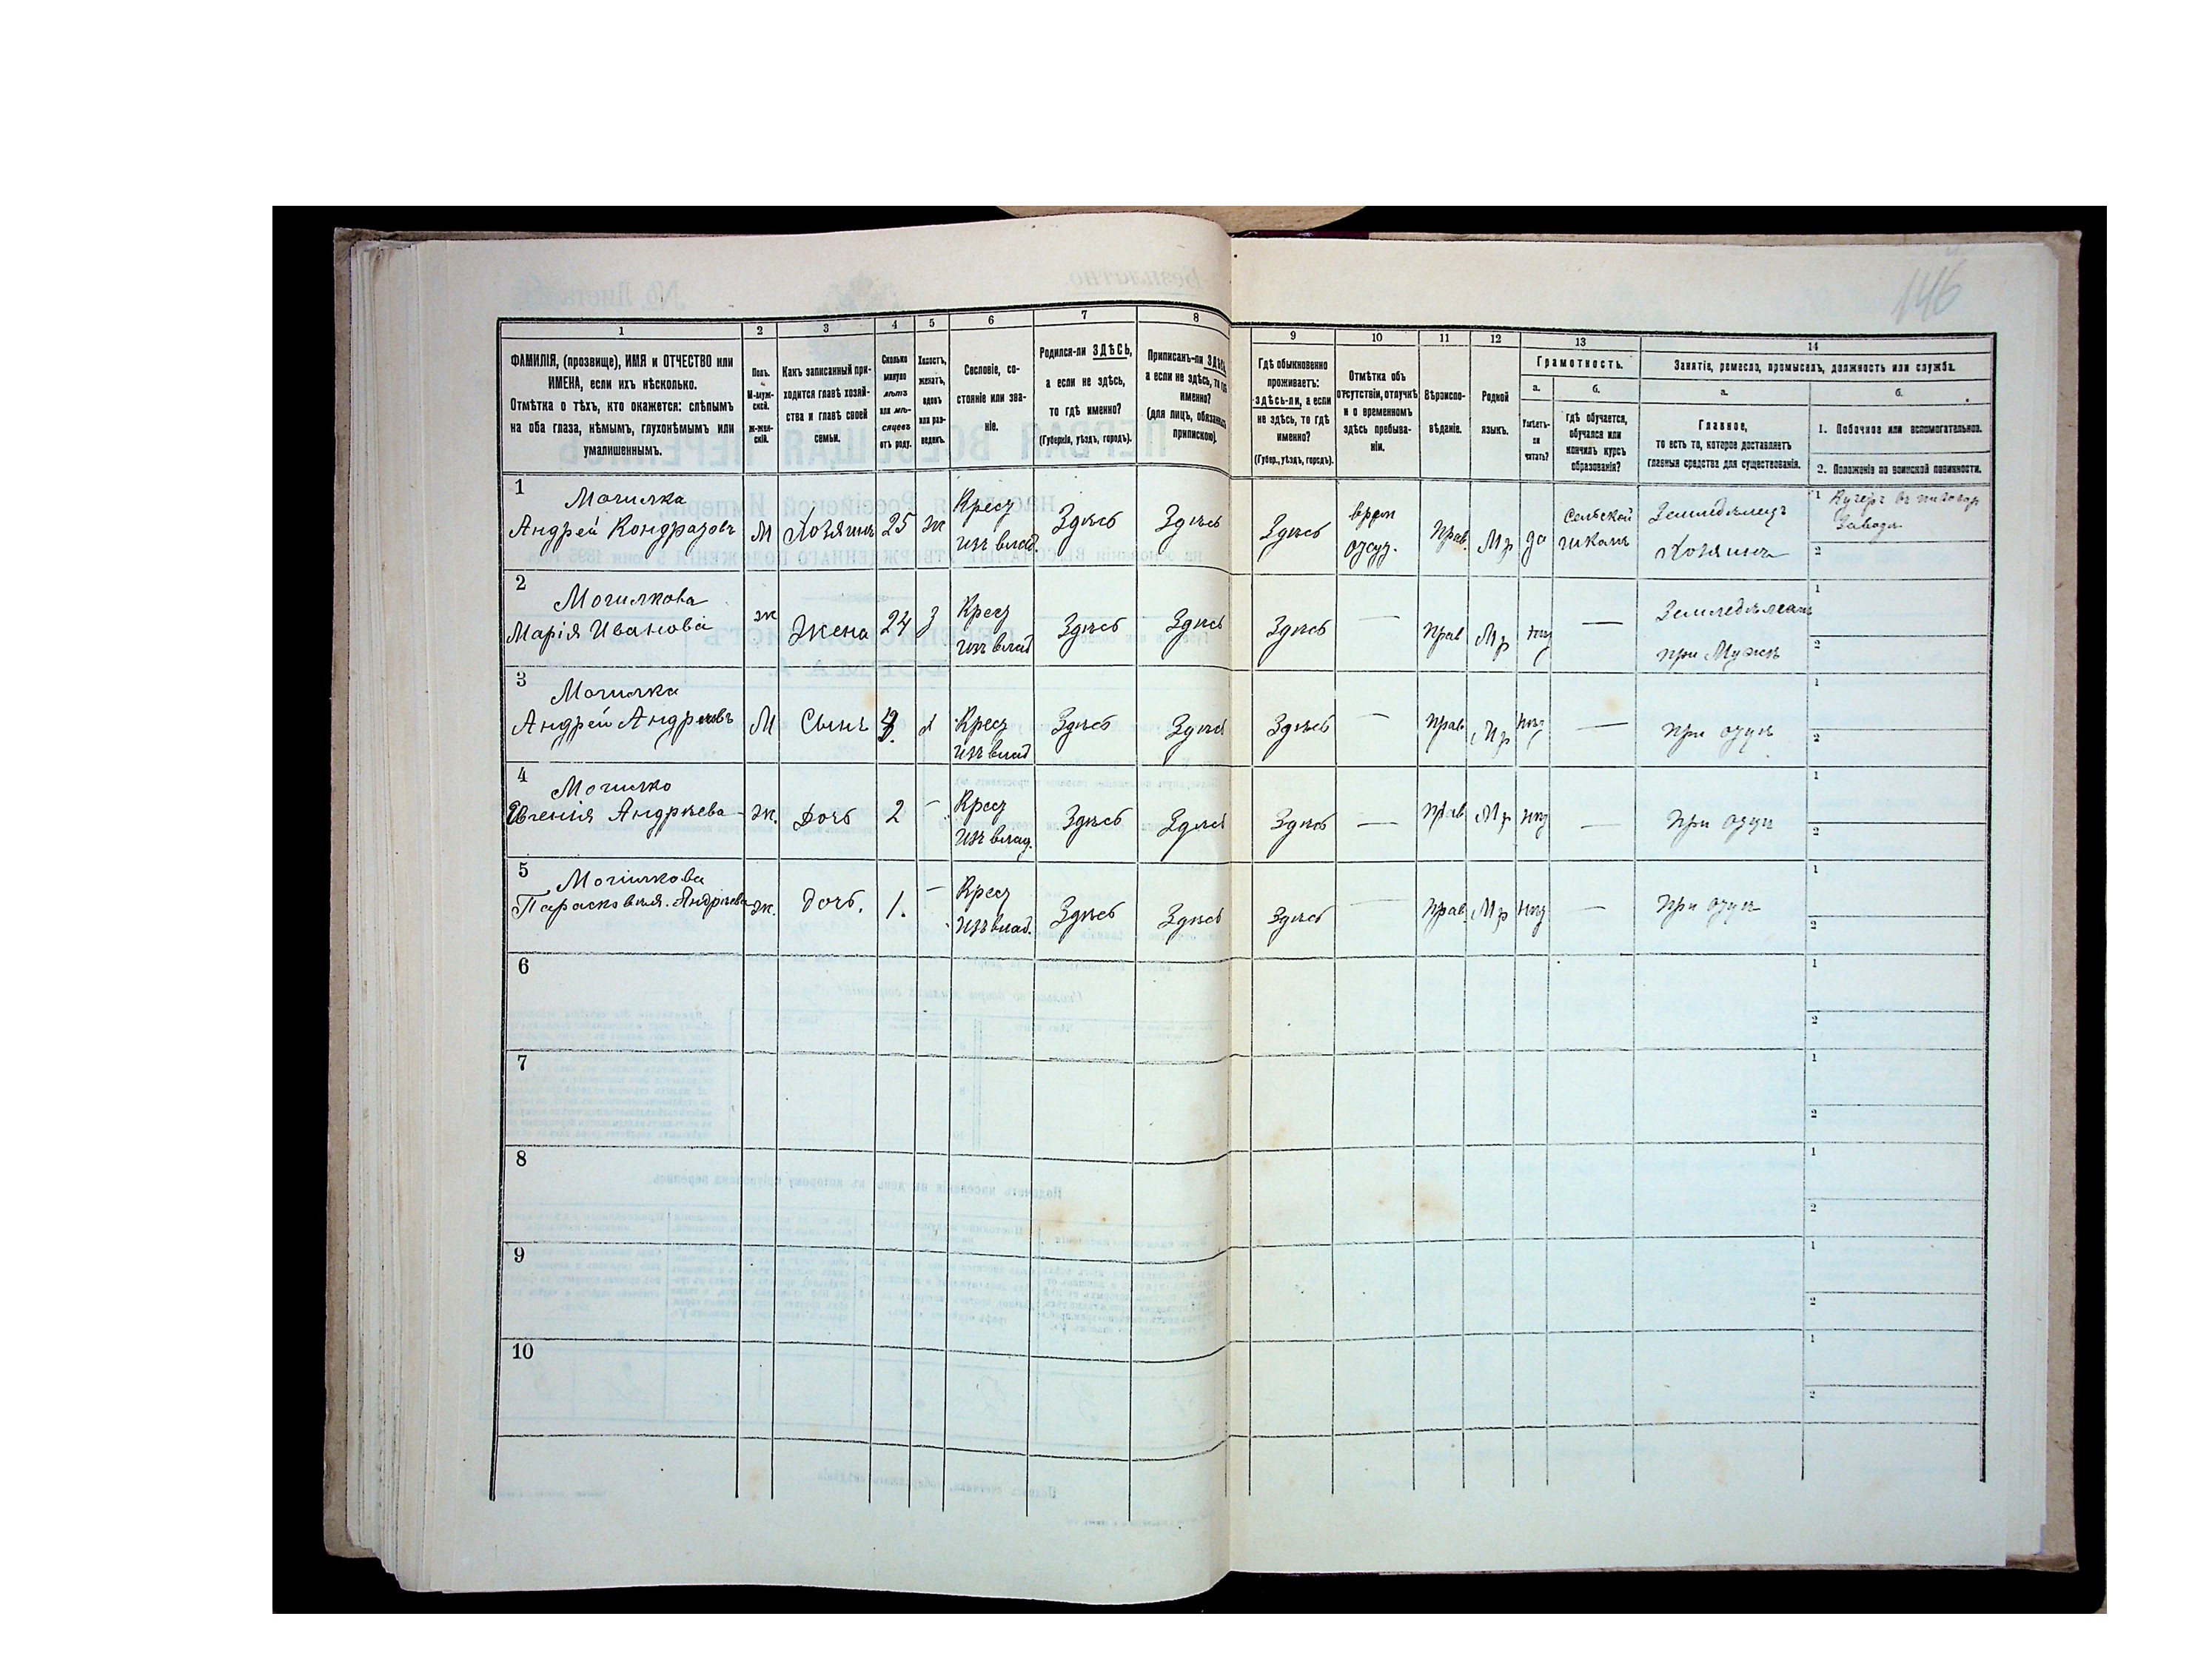 146
1 2 3 4 5 6 7 8 9 10 11 12 13 14
ФАМИЛІЯ, (прозвище), ИМЯ и ОТЧЕСТВО или
ИМЕНА, если ихъ нѣсколько.
Отмѣтка о тѣхъ, кто окажется: слѣпымъ
на оба глаза, нѣмымъ, глухонѣмымъ или
умалишеннымъ.
Полъ.
М-муж-
ской.
ж-жен-
скій.
Какъ записанный при-
ходится главѣ хозяй-
ства и главѣ своей
семьи.
Сколько
минуло
лѣтъ
или мѣ-
сяцевъ
отъ роду.
Холостъ,
женатъ,
вдовъ
или раз-
веденъ.
Сословіе, со-
стояніе или зва-
ніе.
Родился-ли ЗДѢСЬ,
а если не здѣсь,
то гдѣ именно?
(Губернія, уѣздъ, городъ).
Приписанъ-ли ЗДѢСЬ,
а если не здѣсь, то гдѣ
именно?
(для лицъ, обязанныхъ
припискою).
Гдѣ обыкновенно
проживаетъ:
здѣсь-ли, а если
не здѣсь, то гдѣ
именно?
(Губер., уѣздъ, городъ).
Отмѣтка объ
отсутствіи, отлучкѣ
и о временномъ
здѣсь пребыва-
ніи.
Вѣроиспо-
вѣданіе.
Родной
языкъ.
Грамотность.
а. б.
Умѣетъ-
ли
читать?
гдѣ обучается,
обучался или
кончилъ курсъ
образованія?
Занятіе, ремесло, промыселъ, должность или служба.
а. б.
Главное,
то есть то, которое доставляетъ
главныя средства для существованія.
1. Побочное или вспомогательное.
2. Положеніе по воинской повинности.
1 Могилка
Андрей Кондратовъ М Хозяинъ 25 ж
Крест
изъ влад.
Здѣсь Здѣсь Здѣсь
врем
отсут.
Прав. Мр да
Сельской
школѣ
Земледѣлецъ
Хозяинъ
1 Кучеръ въ
Заводѣ
2
2 Могилкова
Марія Иванова ж Жена 24 з
Крест
изъ влад
Здѣсь Здѣсь Здѣсь — Прав Мр нѣт —
при Мужѣ
1
2
3 Могилка
Андрей Андреевъ М Сынъ х
Крест
изъ влад
Здѣсь Здѣсь Здѣсь — Прав Мр нѣт — При отцѣ
1
2
4 Могилко
Евгенія Андрѣева ж. Дочь 2 -
Крест
изъ влад.
Здѣсь Здѣсь Здѣсь — Прав Мр нѣт — При отцѣ
1
2
5 Могилкова
Парасковия. Андрѣева ж. Дочь. 1. -
Крест
изъ влад.
Здѣсь Здѣсь Здѣсь — Прав. Мр нѣт — При отцѣ
1
2
6
1
2
7
1
2
8
1
2
9
1
2
10
1
2